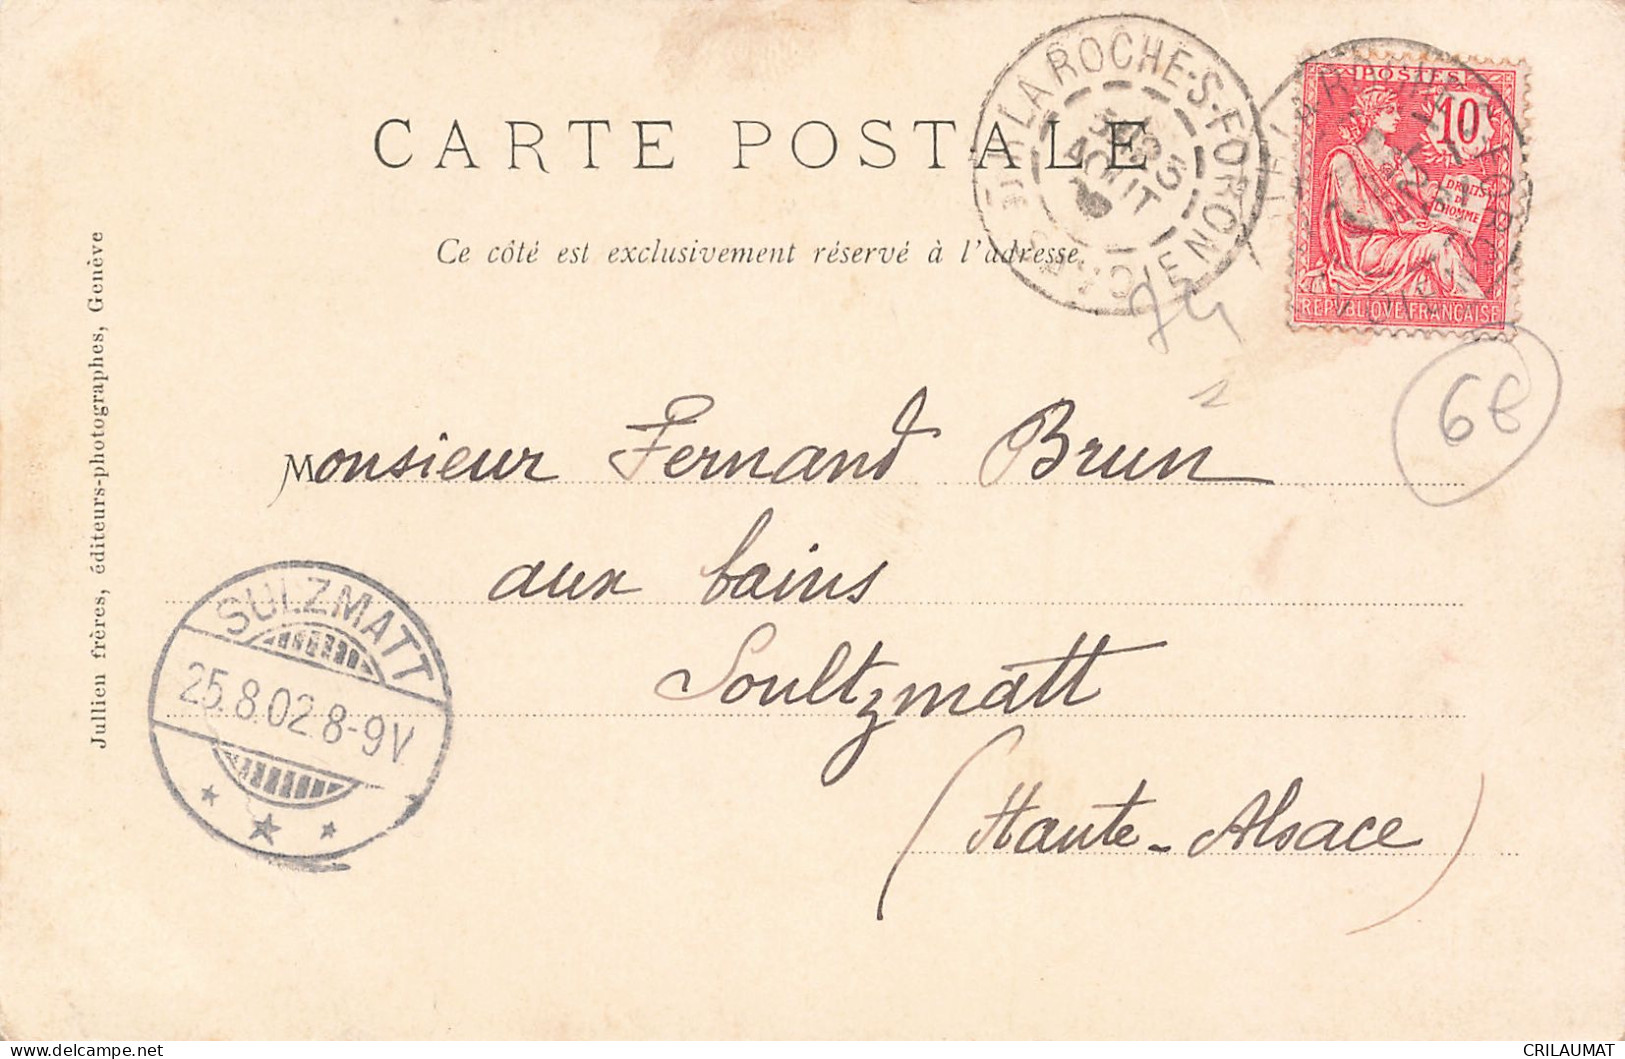 CARTE POSTALE
Ce côté est exclusivement réservé à l'adresse
LA ROCHE-S-FORON
AOUT
POSTES
10
DROITS
DE
L'HOMME
REPVBLIQVE FRANÇAISE
74
68
Monsieur Fernand Brun
aux bains
Soultzmatt
(Haute-Alsace)
SULZMATT
25.8.02.8-9V.
Jullien frères, éditeurs-photographes, Genève
CRILAUMAT